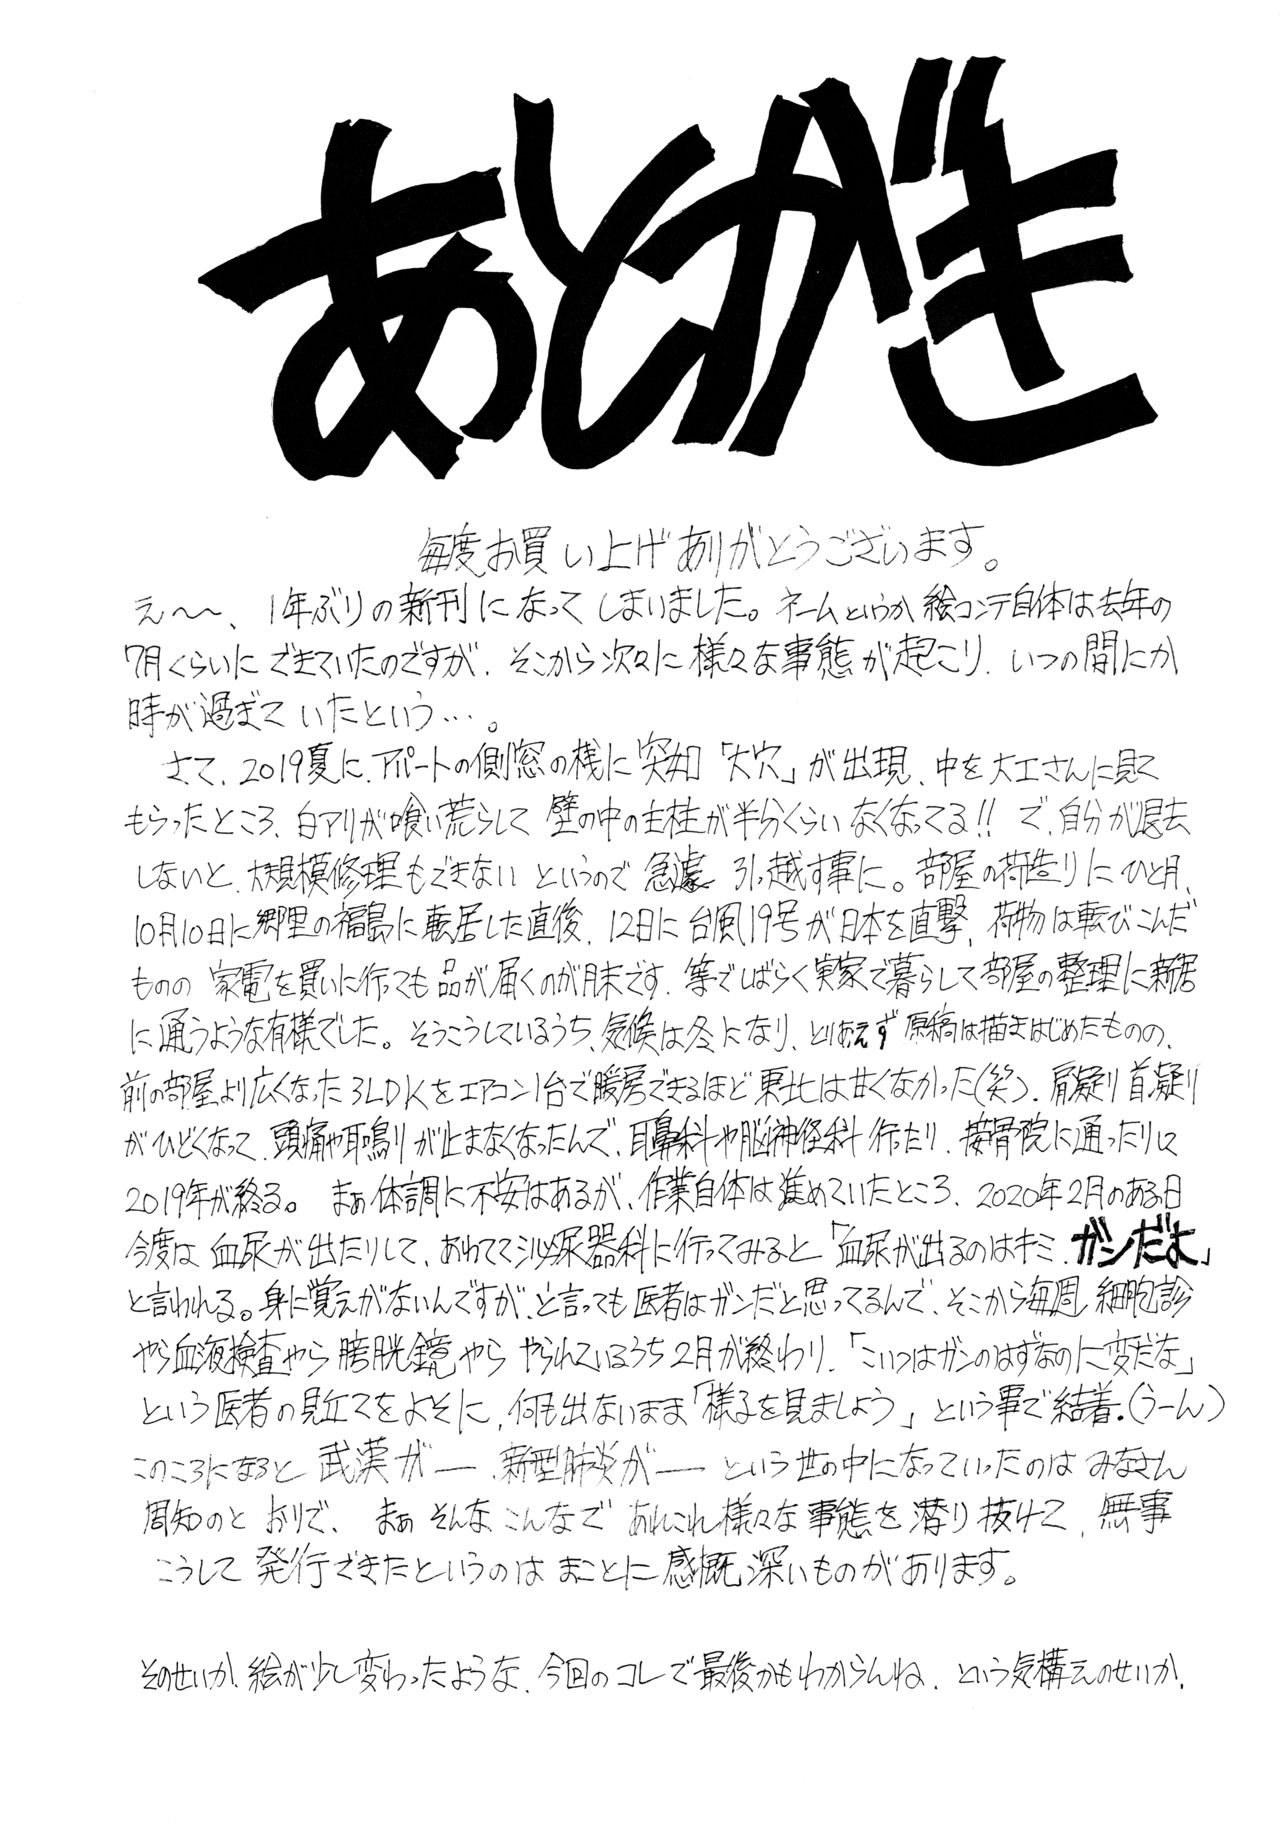 あとがき
毎度お買い上げありがとうございます。
え〜〜、1年ぶりの新刊になってしまいました。ネームというか絵コンテ自体は去年の
7月くらいにできていたのですが、そこから次々に様々な事態が起こり、いつの間にか
時が過ぎていたという…。
さて、2019夏に、アパートの側窓の桟に突如「大穴」が出現、中を大工さんに見て
もらったところ、白アリが喰い荒らして壁の中の主柱が半分くらいなくなってる!! で、自分が退去
しないと、大規模修理もできないというので急遽引っ越す事に。部屋の荷造りにひと月、
10月10日に郷里の福島に転居した直後、12日に台風19号が日本を直撃、荷物は転びこんだ
ものの家電を買いに行っても品が届くのが月末です、等でしばらく実家で暮らして部屋の整理に新居
に通うような有様でした。そうこうしているうち、気候は冬になり、とりあえず原稿は描きはじめたものの、
前の部屋より広くなった3LDKをエアコン1台で暖房できるほど東北は甘くなかった(笑)、肩凝り首凝り
がひどくなって、頭痛や耳鳴りが止まなくなったんで、耳鼻科や脳神経科行ったり、接骨院に通ったりに
2019年が終る。まぁ体調に不安はあるが、作業自体は進めていたところ、2020年2月のある日
今度は血尿が出たりして、あわててシ泌尿器科に行ってみると「血尿が出るのはキミ、ガンだよ」
と言われる。身に覚えがないんですが、と言っても医者はガンだと思ってるんで、そこから毎週細胞診
やら血液検査やら膀胱鏡やらやられているうち2月が終わり、「こいつはガンのはずなのに変だな」
という医者の見立てをよそに、何も出ないまま「様子を見ましょう」という事で結着。(うーん)
このころになると武漢がー、新型肺炎がーという世の中になっていったのはみなさん
周知のとおりで、まぁそんなこんなであれこれ様々な事態を潜り抜けて、無事
こうして発行できたというのはまことに感慨深いものがあります。
そのせいか、絵が少し変わったような、今回のコレで最後かもわからんね、という気構えのせいか、